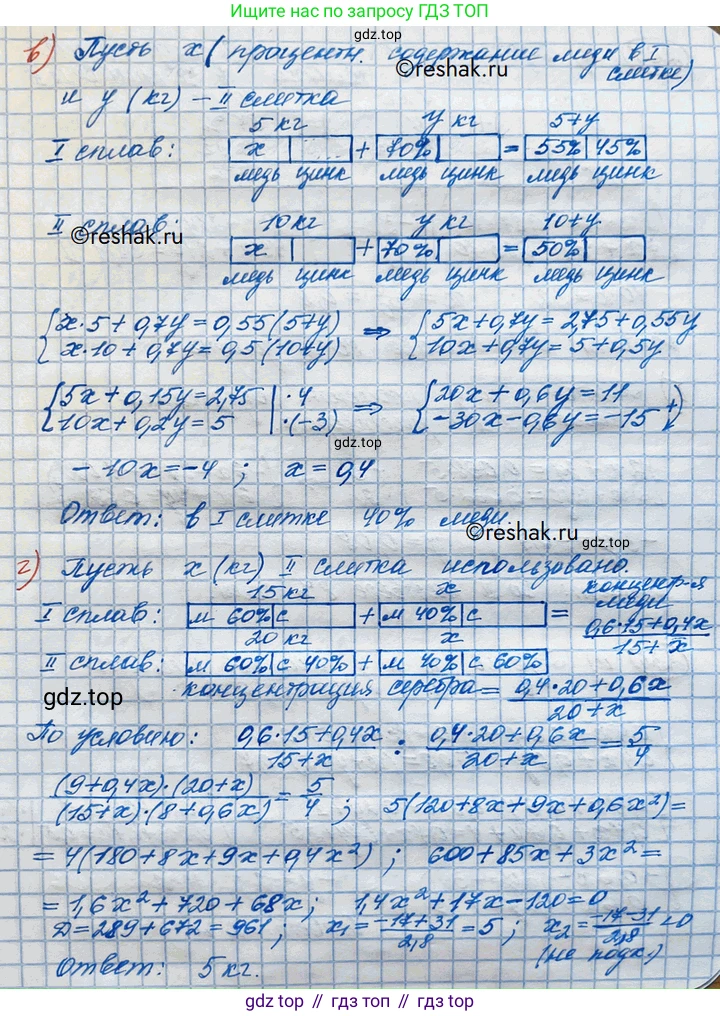 Ищите ответы по запросу ГДЗ ТОП
в) Пусть x (процентн. содержание меди в I слитке)
©reshak.ru
и y (кг) – II слитка
5 кг y кг 5+y
I сплав: x + 70% = 55% 45%
медь цинк медь цинк медь цинк
II сплав: 10 кг y кг 10+y
©reshak.ru
x + 70% = 50%
медь цинк медь цинк медь цинк
{ x·5 + 0,7y = 0,55(5+y) => { 5x+0,7y = 2,75+0,55y
{ x·10 + 0,7y = 0,5(10+y) { 10x+0,7y = 5+0,5y
{ 5x+0,15y = 2,75 | ·4 => { 20x + 0,6y = 11
{ 10x+0,2y = 5 | ·(-3) { -30x-0,6y = -15 +
gdz.top
-10x = -4 ; x = 0,4
Ответ: в I слитке 40% меди
©reshak.ru
gdz.top
г) Пусть x (кг) II слитка использовано.
15 кг x концентр-я меди
I сплав: м 60% с + м 40% с = 0,6·15+0,4x / 15+x
20 кг x
II сплав: м 60% с 40% + м 40% с 60%
gdz.top
концентрация серебра = 0,4·20+0,6x / 20+x
По условию: 0,6·15+0,4x / 15+x : 0,4·20+0,6x / 20+x = 5/4
(9+0,4x)·(20+x) / (15+x)·(8+0,6x) = 5/4 ; 5(120+8x+9x+0,6x²) =
= 4(180+8x+9x+0,4x²) ; 600+85x+3x² =
= 1,6x²+720+68x ; 1,4x²+17x-120=0
D=289+672=961 ; x₁ = -17+31 / 2,8 = 5 ; x₂ = -17-31 / 2,8 <0
(не подх.)
Ответ: 5 кг.
gdz.top // гдз.топ // гдз.top